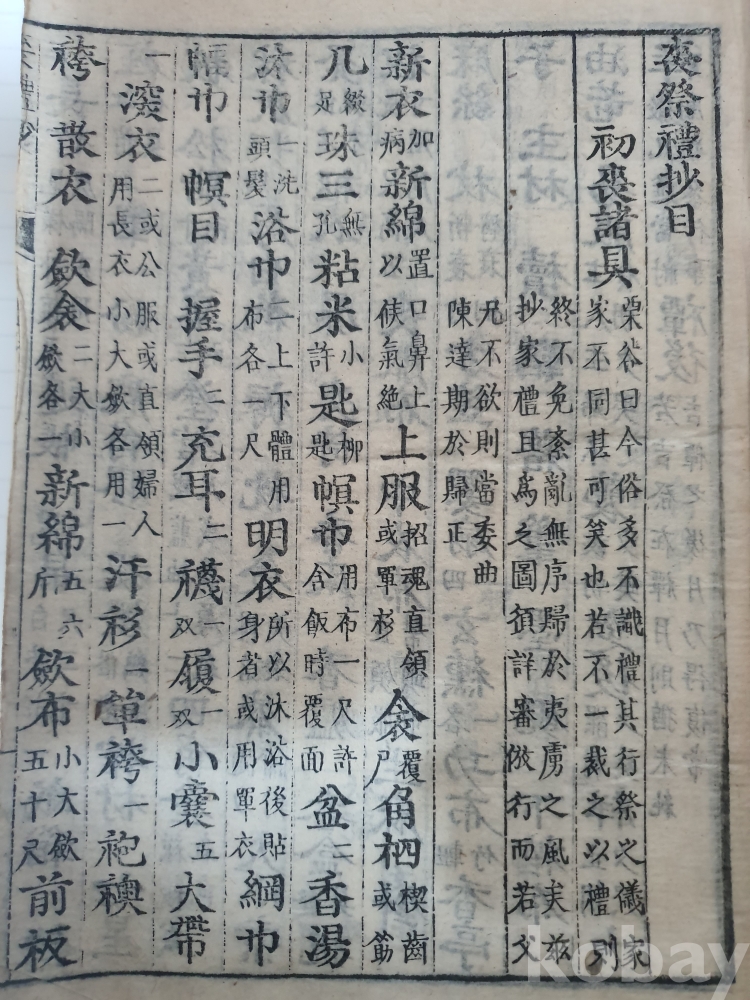 喪祭禮抄目
初喪諸具 栗谷曰今俗多不識禮其行祭之儀家家不同甚可笑也若不一裁之以禮則
終不免紊亂無序歸於夷虜之風矣玆抄家禮且爲之圖須詳審倣行而若父
兄不欲則當委曲陳達期於歸正
新衣加病新綿置口鼻上以俟氣絶上服招魂直領或單衫衾覆尸角柶楔齒或筯
几綴足珠三無孔粘米小許匙柳匙幎巾用布一尺許含飯時覆面盆二香湯
沐巾一洗頭髮浴巾二上下體用布各一尺明衣所以沐浴後貼身者或用單衣網巾
幅巾幎目握手二充耳二襪一双履一双小囊五大帶
一深衣二或公服或直領婦人用長衣小大斂各用一汗衫一單袴一袍襖
袴散衣斂衾二大小斂各一新綿五六斤斂布小大斂五十尺前板
kobay